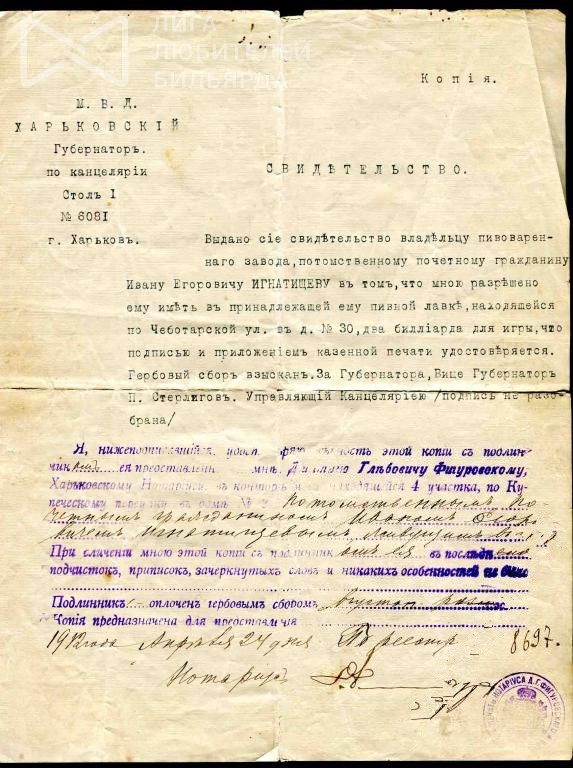 ЛИГА
ЛЮБИТЕЛЕЙ
БИЛЬЯРДА
Копія.
М. В. Д.
ХАРЬКОВСКІЙ
Губернаторъ.
по канцеляріи
Столъ I
№ 6081
г. Харьковъ.
СВИДѢТЕЛЬСТВО.
Выдано сіе свидѣтельство владѣльцу пивоварен-
наго завода,потомственному почетному гражданину
Ивану Егоровичу ИГНАТИЩЕВУ въ томъ,что мною разрѣшено
ему имѣть въ принадлежащей ему пивной лавкѣ,находящейся
по Чеботарской ул. въ д. № 30,два билліарда для игры,что
подписью и приложеніемъ казенной печати удостовѣряется.
Гербовый сборъ взысканъ.За Губернатора,Вице Губернаторъ
П. Стерлиговъ. Управляющій Канцеляріею /подпись не разо-
брана/
Я, нижеподписавшійся, вѣрность этой копіи съ подлин-
никомъ ея представленн мнѣ, Глѣбовичу Фигуровскому,
Харьковскому Нотаріусу, въ конторѣ 4 участка, по Ку-
печескому въ домѣ № потомственнымъ по
четнымъ гражданиномъ Иваномъ
Игнатищевымъ
При сличеніи мною этой копіи съ подлинник въ послѣднемъ
подчистокъ, приписокъ, зачеркнутыхъ словъ и никакихъ особенностей не было
Подлинникъ оплоченъ гербовымъ сборомъ
Копія предназначена для представленія
1912 года Апрѣля 24 дня По реестру 8697.
Нотаріусъ
ПЕЧАТЬ НОТАРІУСА Д.Г.ФИГУРОВСКАГО